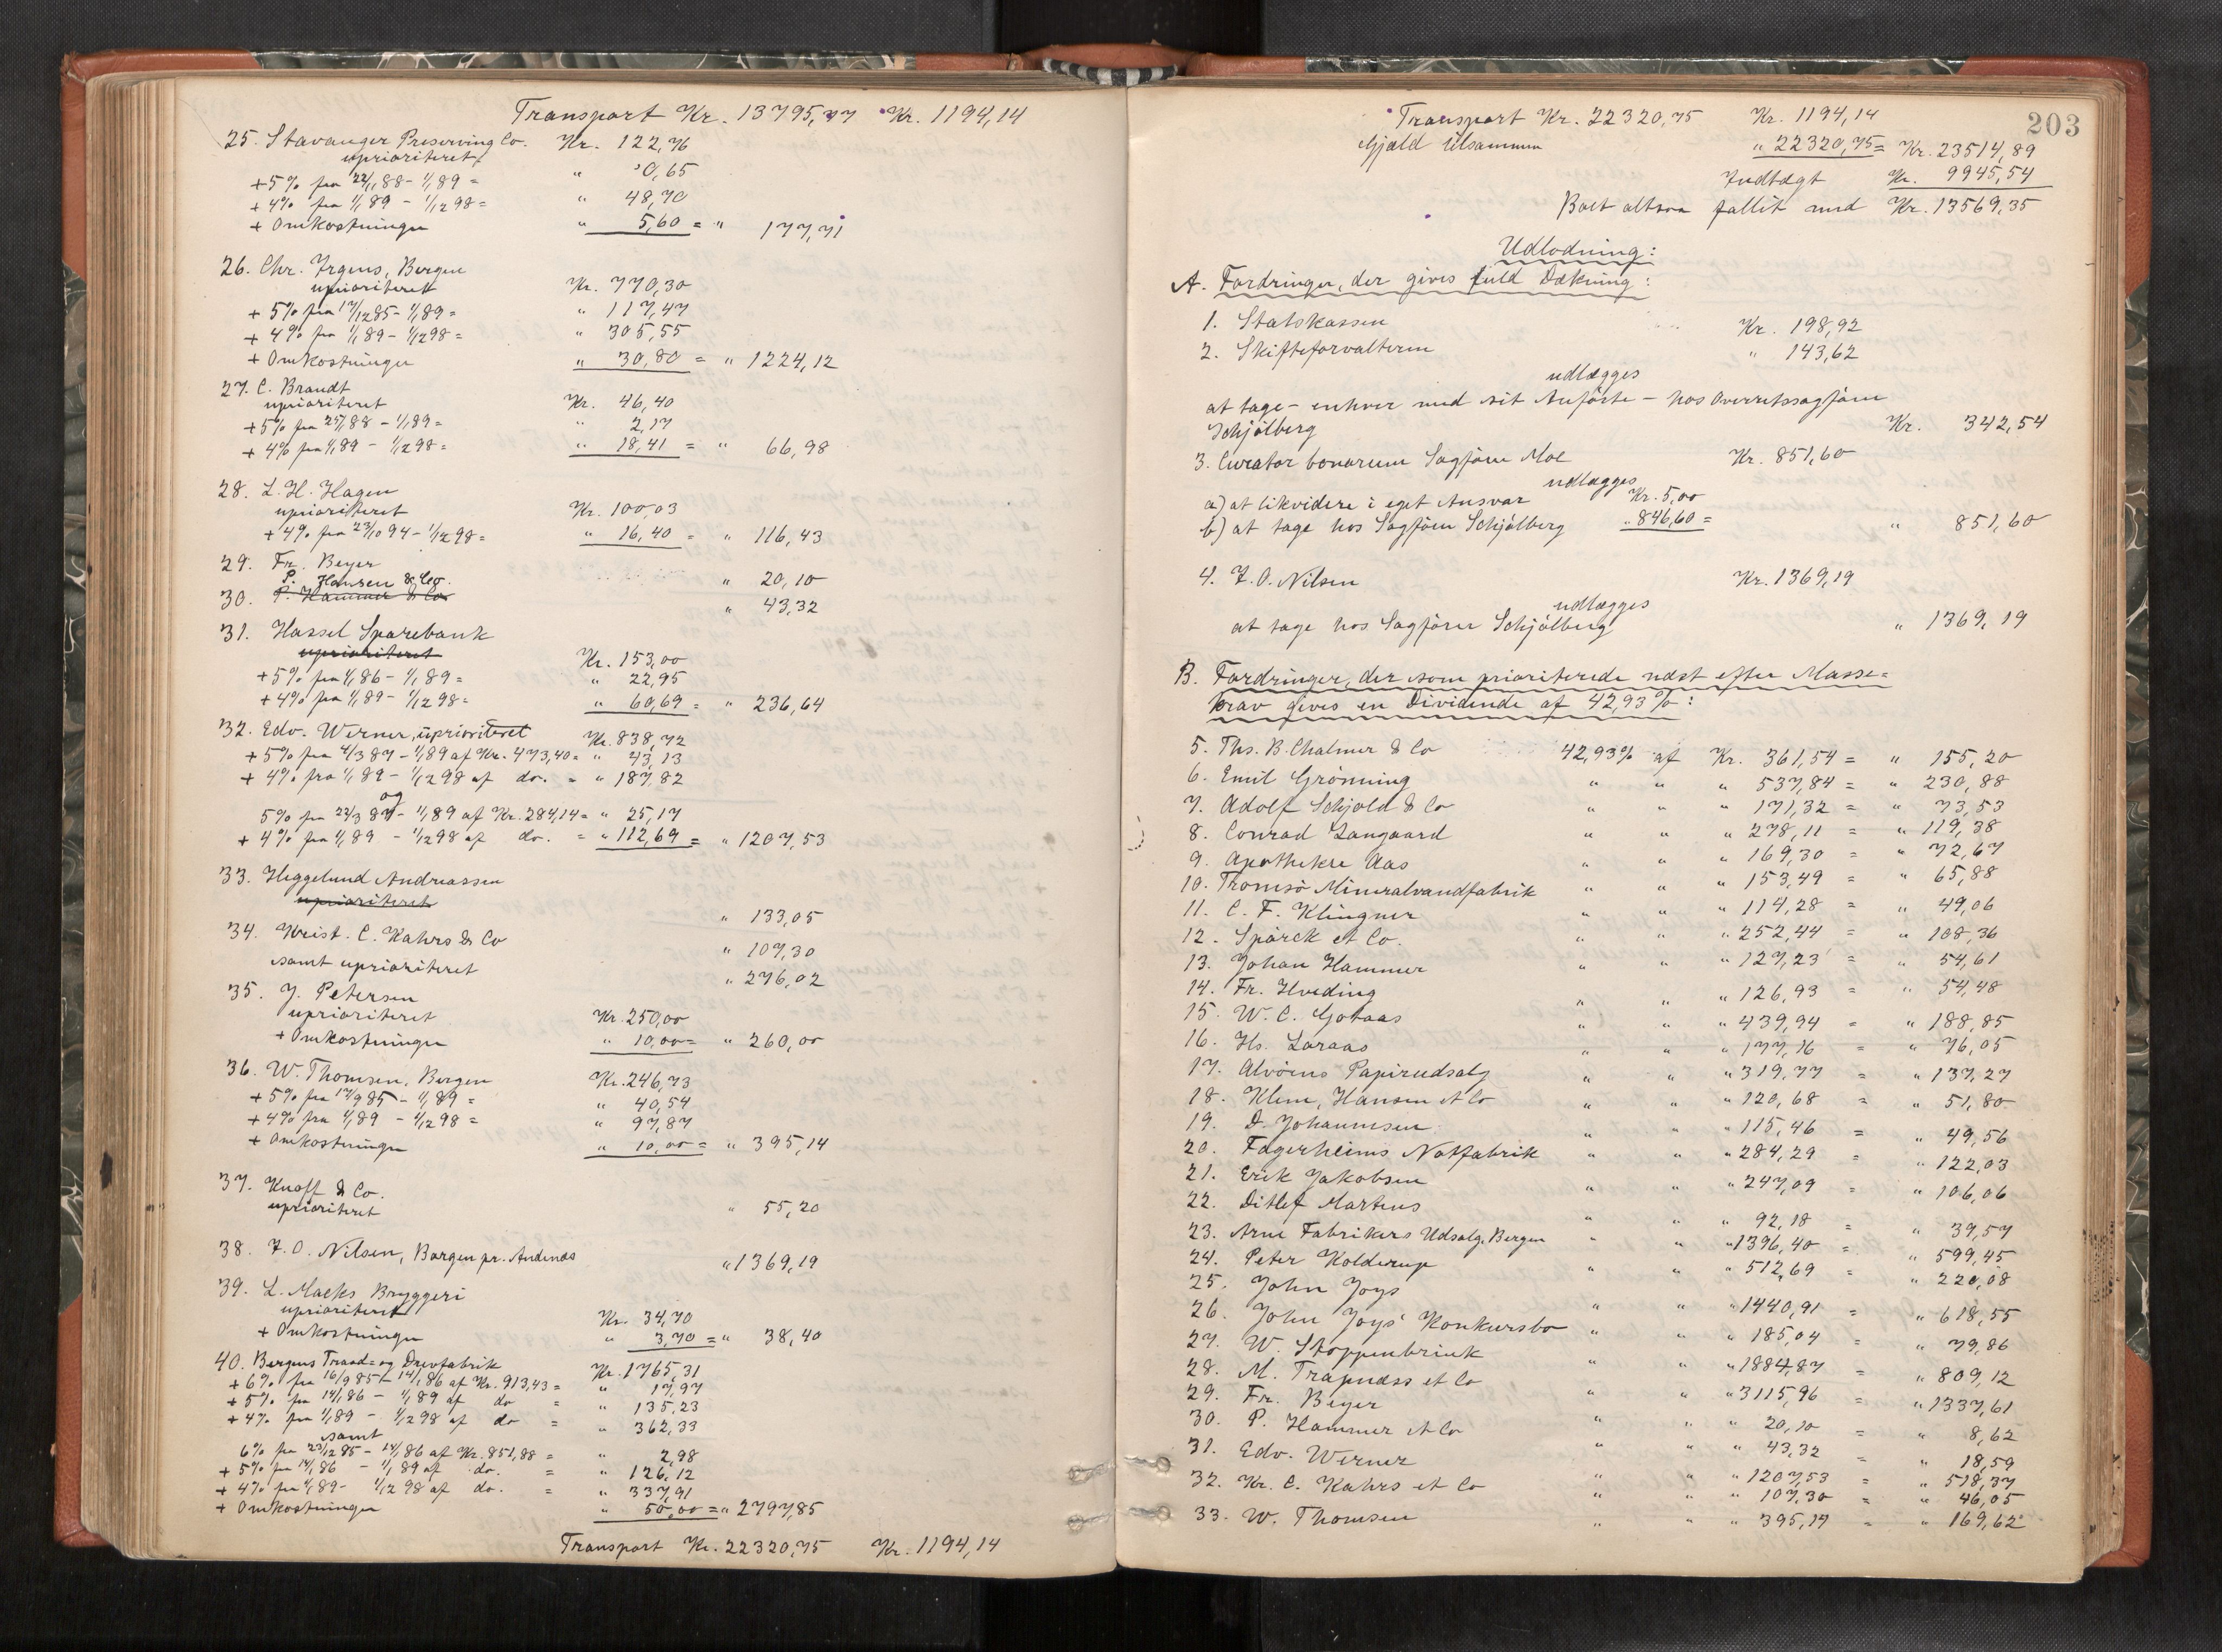 Transport Kr. 13795,77 Kr. 1194,14
25. Stavanger Preserving Co. Kr. 122,76
uprioriteret
+5% fra 22/1 88 - 1/1 89 = " 0,65
+ 4% fra 1/1 89 - 1/12 98 = " 48,70
+ Omkostninger " 5,60 = " 177,71
26. Chr. Irgens, Bergen
uprioriteret Kr. 770,30
+ 5% fra 17/12 85 - 1/1 89 = " 117,47
+ 4% fra 1/1 89 - 1/12 98 = " 305,55
+ Omkostninger " 30,80 = " 1224,12
27. C. Brandt
uprioriteret Kr. 46,40
+5% fra 25/1 88 - 1/1 89 = " 2,17
+ 4% fra 1/1 89 - 1/12 98 = " 18,41 = " 66,98
28. L. H. Hagen
uprioriteret Kr. 100,03
+4% fra 23/10 94 - 1/12 98 = " 16,40 = " 116,43
29. Fr. Beyer " 20,10
P. Hansen & Co.
30. P. Hammer & Co " 43,32
31. Hassel Sparebank
uprioriteret Kr. 153,00
+5% fra 1/1 86 - 1/1 89 = " 22,95
+4% fra 1/1 89 - 1/12 98 = " 60,69 = " 236,64
32. Edv. Werner, uprioriteret Kr. 838,72
+ 5% fra 4/3 87 - 1/1 89 af Kr. 473,40 = " 43,13
+ 4% fra 1/1 89 - 1/12 98 af do. = " 187,82
og
5% fra 22/3 87 - 1/1 89 af Kr. 284,14 = " 25,17
+ 4% fra 1/1 89 - 1/12 98 af do. = " 112,69 = " 1207,53
33. Heggelund Andreassen
uprioriteret " 133,05
34. Krist. C. Kahrs & Co " 107,30
samt uprioriteret " 276,02
35. J. Petersen
uprioriteret Kr. 250,00
+ Omkostninger " 10,00 = " 260,00
36. W. Thomsen, Bergen Kr. 246,73
+ 5% fra 17/9 85 - 1/1 89 = " 40,54
+ 4% fra 1/1 89 - 1/12 98 = " 97,87
+ Omkostninger " 10,00 = " 395,14
37. Knoff & Co.
uprioriteret " 55,20
38. F. O. Nilsen, Borgen pr. Andenæs " 1369,19
39. L. Macks Bryggeri
uprioriteret Kr. 34,70
+ Omkostninger " 3,70 = " 38,40
40. Bergens Traad= og Drevfabrik Kr. 1765,31
+ 6% fra 16/9 85 - 14/1 86 af Kr. 913,43 = " 17,97
+ 5% fra 14/1 86 - 1/1 89 af do = " 135,23
+ 4% fra 1/1 89 - 1/12 98 af do = " 362,33
samt
6% fra 23/12 85 - 14/1 86 af Kr. 851,88 = " 2,98
+ 5% fra 14/1 86 - 1/1 89 af do. = " 126,12
+ 4% fra 1/1 89 - 1/12 98 af do. = " 337,91
+ Omkostninger " 50,00 = " 2797,85
Transport Kr. 22320,75 Kr. 1194,14
203
Transport Kr. 22320,75 Kr. 1194,14
Gjæld tilsammen " 22320,75 = Kr. 23514,89
Indtægt Kr. 9945,54
Boet altsaa fallit med Kr. 13569,35
Udlodning:
A. Fordringer, der gives fuld Dækning:
1. Statskassen Kr. 198,92
2. Skifteforvalteren " 143,62
udlægges
at tage - enhver med sit Anførte - hos Overretssagfører
Schjølberg Kr. 342,54
3. Curator bonorum Sagfører Moe Kr. 851,60
udlægges
a) at likvidere i eget Ansvar Kr. 5,00
b) at tage hos Sagfører Schjølberg " 846,60 = " 851,60
4. F. O. Nilsen Kr. 1369,19
udlægges
at tage hos Sagfører Schjølberg " 1369,19
B. Fordringer, der som prioriterede næst efter Masse=
krav gives en Dividende af 42,93%:
5. Ths. B. Chalmer & Co 42,93% af Kr. 361,54 = " 155,20
6. Emil Grønning " " " 537,84 = " 230,88
7. Adolf Schjold & Co " " " 171,32 = " 73,53
8. Conrad Langaard " " " 278,11 = " 119,38
9. Apotheker Aas " " " 169,30 = " 72,67
10. Tromsø Mineralvandfabrik " " " 153,49 = " 65,88
11. C. F. Klingner " " " 114,28 = " 49,06
12. Spärck et Co. " " " 252,44 = " 108,36
13. Johan Hammer " " " 127,23 = " 54,61
14. Fr. Hveding " " " 126,93 = " 54,48
15. W. C. Gotaas " " " 439,94 = " 188,85
16. Hs. Laraas " " " 177,16 = " 76,05
17. Alvøens Papirudsalg " " " 319,77 = " 137,27
18. Klem, Hansen et Co " " " 120,68 = " 51,80
19. D. Johannesen " " " 115,46 = " 49,56
20. Fagerheims Notfabrik " " " 284,29 = " 122,03
21. Erik Jakobsen " " " 247,09 = " 106,06
22. Ditlef Martens " " " 92,18 = " 39,57
23. Arne Fabrikers Udsalg, Bergen " " " 1396,40 = " 599,45
24. Peter Kolderup " " " 512,69 = " 220,08
25. John Joys " " " 1440,91 = " 618,55
26. John Joys' Konkursbo " " " 185,04 = " 79,86
27. W. Stoppenbrink " " " 1884,87 = " 809,12
28. M. Trapnæss et Co " " " 3115,96 = " 1337,61
29. Fr. Beyer " " " 20,10 = " 8,62
30. P. Hammer et Co " " " 43,32 = " 18,59
31. Edv. Werner " " " 1207,53 = " 518,37
32. Kr. C. Kahrs et Co " " " 107,30 = " 46,05
33. W. Thomsen " " " 395,14 = " 169,62